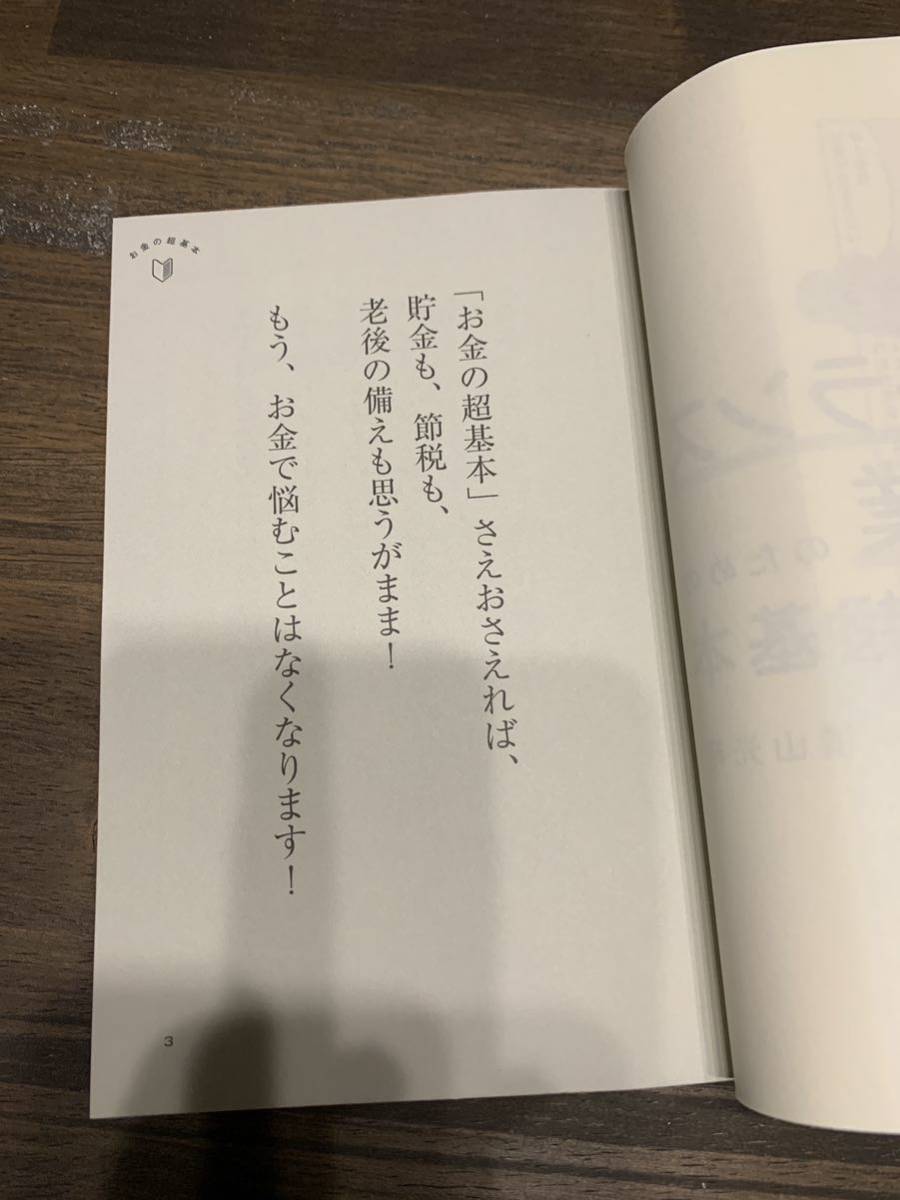 お金の超基本
「お金の超基本」さえおさえれば、
貯金も、節税も、
老後の備えも思うがまま！
もう、お金で悩むことはなくなります！
3